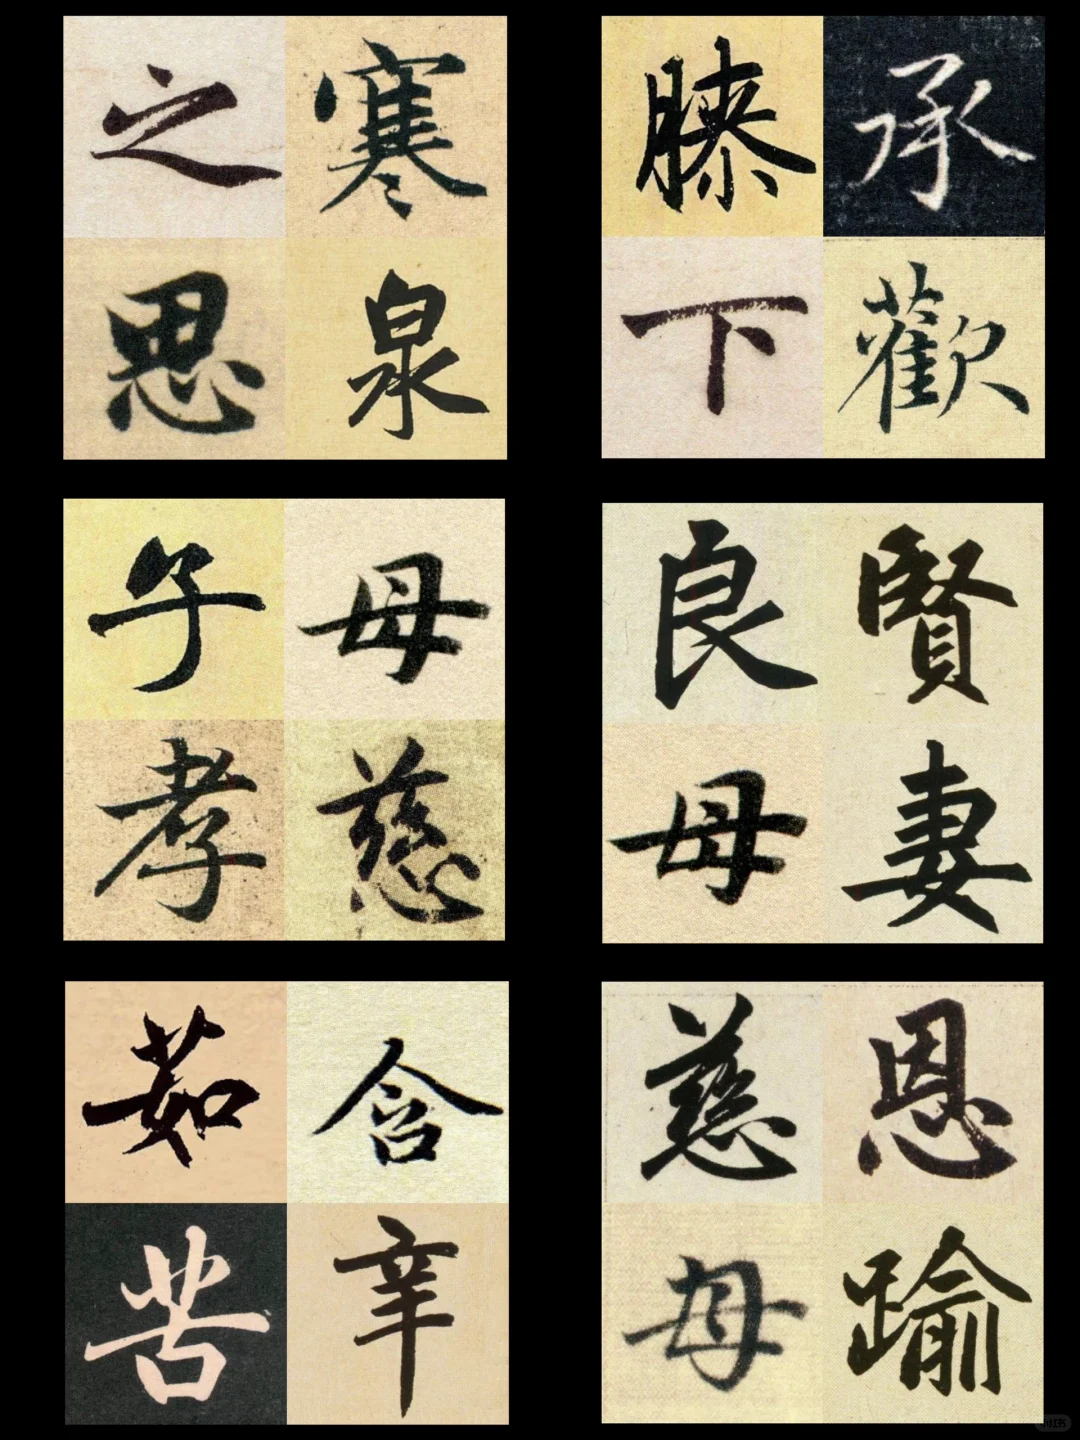 寒泉
之思
承歡
膝下
母慈
子孝
賢妻
良母
含辛
茹苦
恩踰
慈母